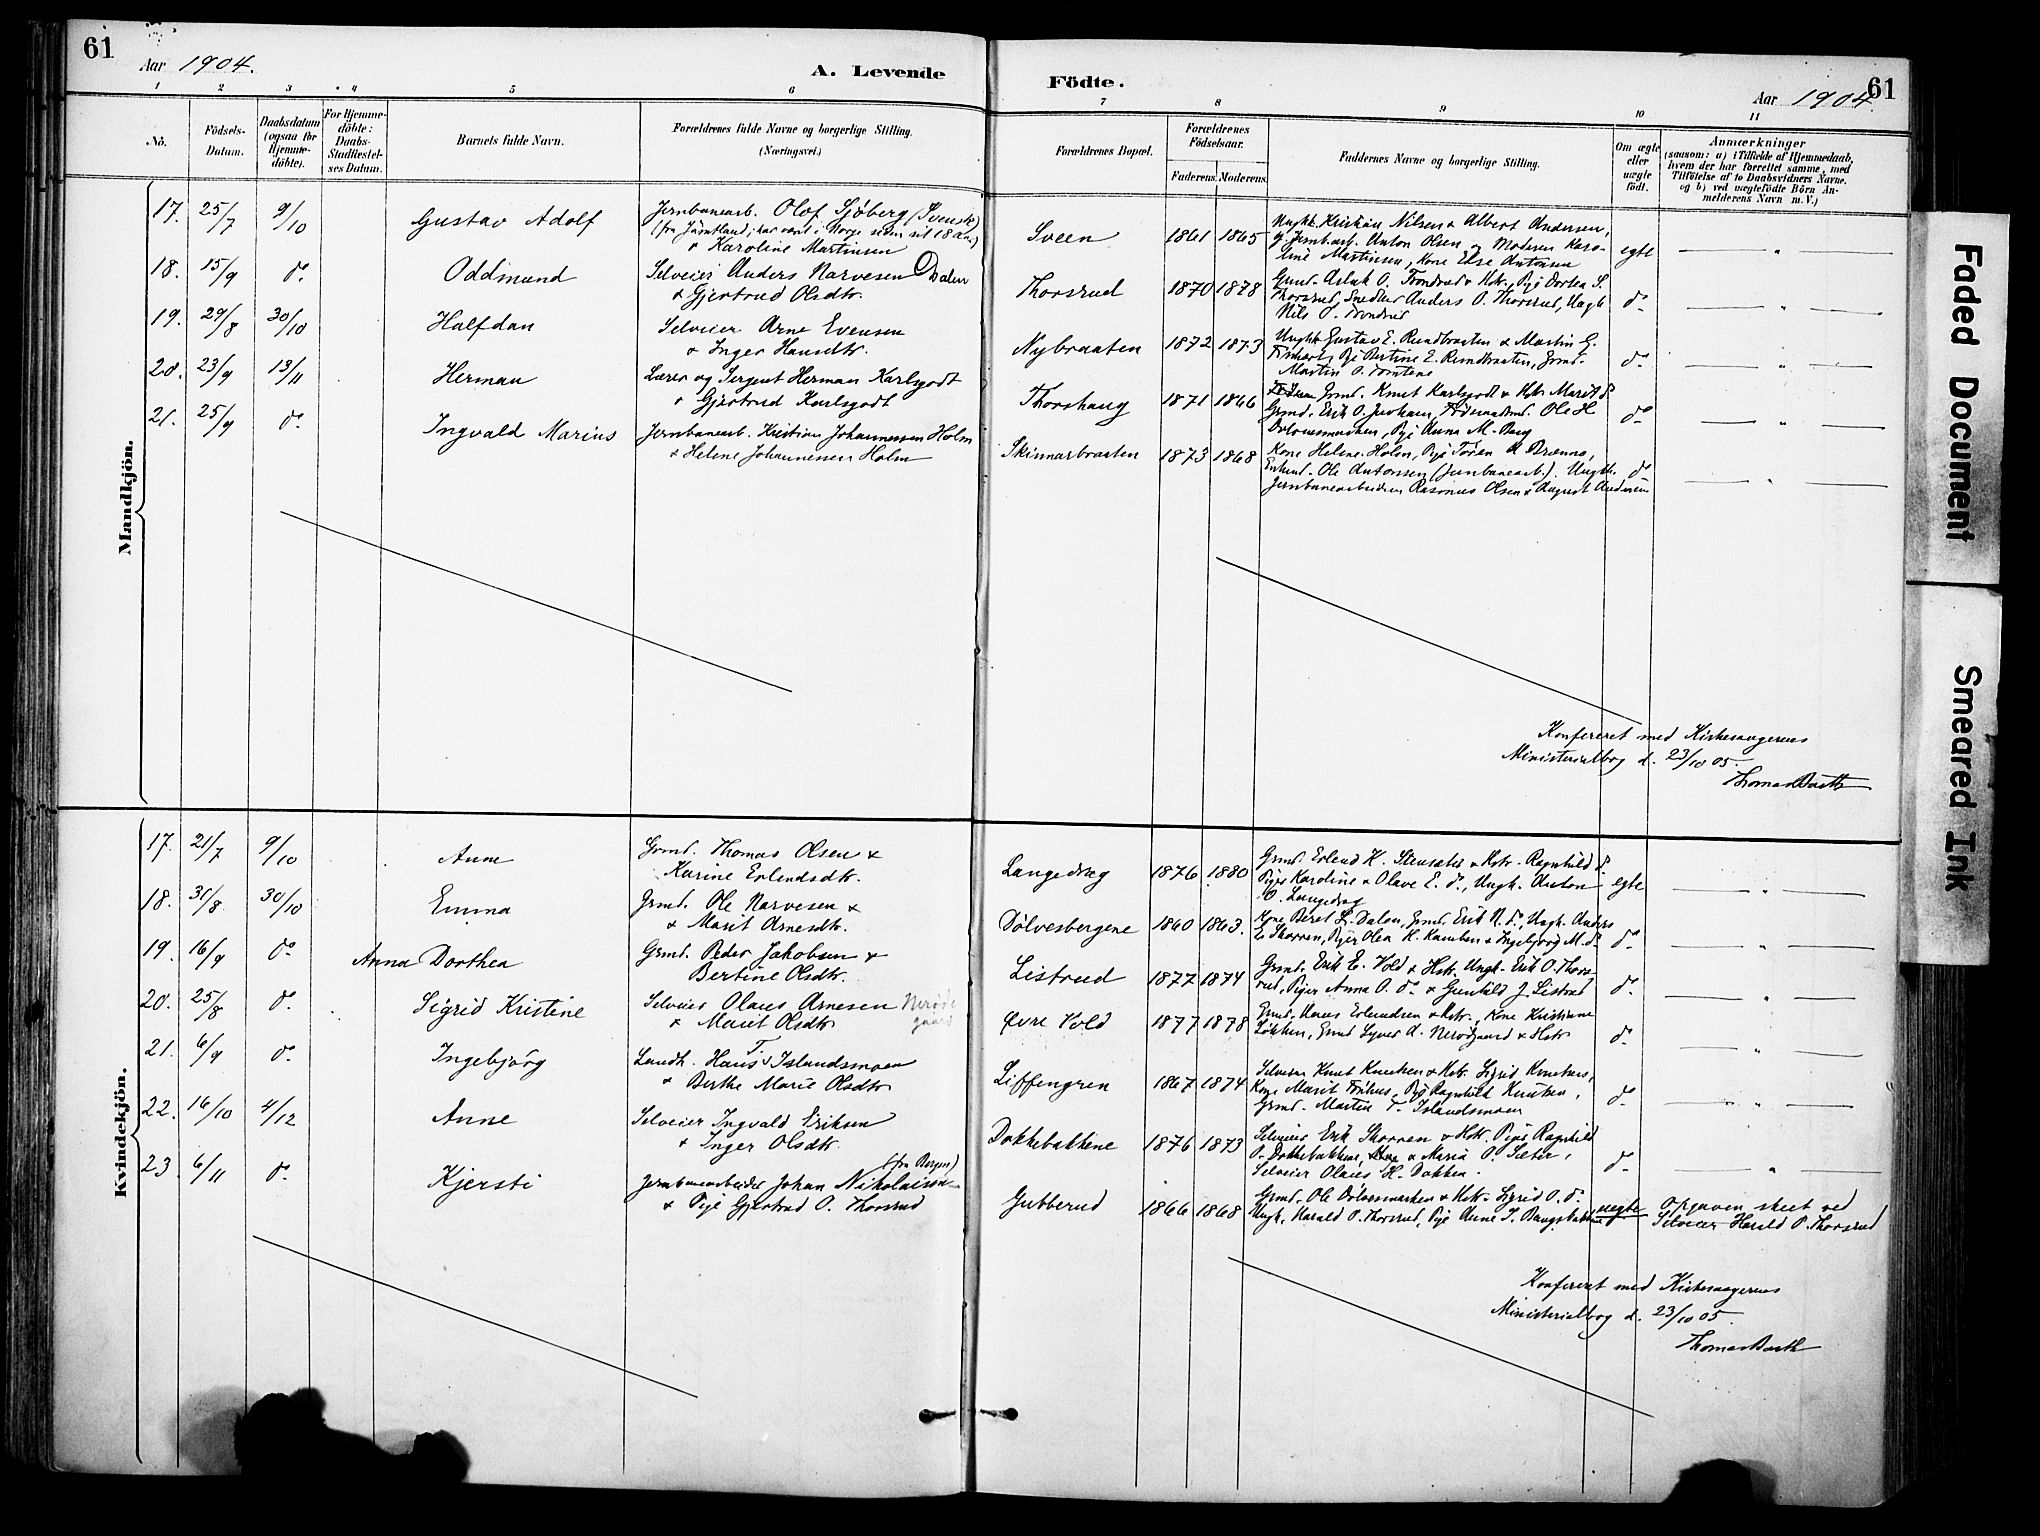 61
Aar 1904.
A. Levende
Födte.
Aar 1904
61
1 2 3 4 5 6 7 8 9 10 11
No.
Födsels-
Datum.
Daabsdatum
(ogsaa for
Hjemme-
döbte).
For Hjemme-
döbte:
Daabs-
Stadfæstel-
ses Datum.
Barnets fulde Navn.
Forældrenes fulde Navne og borgerlige Stilling.
(Næringsvei.)
Forældrenes Bopæl.
Forældrenes
Födselsaar.
Faderens. Moderens.
Faddernes Navne og borgerlige Stilling.
Om ægte
eller
uægte
födt.
Anmærkninger
(saasom: a) i Tilfælde af Hjemmedaab,
hvem der har forrettet samme, med
Tilföielse af to Daabsvidners Navne.
og b) ved uægtefödte Börn An-
melderens Navn m. V.)
Mandkjön.
17. 25/7 9/10 Gustav Adolf
Jernbanearb. Olof Sjöberg (Svensk)
(fra Jämtland; har vært i Norge siden sit 18 Aar)
& Karoline Martinsen
Sveen 1861 1865
Ungk. Kristian Nilsen & Albert Andersen,
g. Jernb.arb. Anton Olsen og Moderen Karo-
line Martinsen, Kone Else Antonsen
egte
18. 15/9 do. Oddmund
Selveier Anders Narvesen Dalen
& Gjertrud Olsdtr.
Thorsrud 1870 1878
Grmd. Aslak O. Trondrud & Hstr., Pige Dortea S.
Thorsrud, Snedker Anders O. Thorsrud, Ungk
Nils O. Trondrud
do.
19. 29/8 30/10 Halfdan
Selveier Arne Evensen
& Inger Hansdtr.
Nybraaten 1872 1873
Ungk. Gustav E. Rundbraaten & Martin G.
Pige Bertine E. Rundbraaten, Grmd.
Martin O. Tomtene
do.
20. 23/9 13/11 Herman
Lærer og Sergent Herman Karlsgodt
& Gjertrud Karlsgodt
Thorshaug 1871 1866
Grmd. Knut Karlsgodt & Hstr. Marit do.
Grmd. Erik O. Ole H.
Dølvesmarken, Pige Anna M. Berg
do.
21. 25/9 do. Ingvald Marius
Jernbanearb. Kristian Johannessen Holm
& Helene Johannessen Holm
Skinnarbraaten 1873 1868
Kone Helene Holm, Pige
Enkem. Ole Antonsen (Jernbanearb.). Ungk.
Jernbanearbeidere Rasmus Olsen & August Andersen
do.
Konfereret med Kirkesangerens
Ministerialbog d. 23/10 05.
Thomas Barth
Kvindekjön.
17. 21/7 9/10 Anne
Grmd. Thomas Olsen &
Karine Erlendsdtr.
Langedrag 1876 1880
Grmd. Erlend K. Stensæter & Hstr. Ragnhild do.
Piger Karoline & Olave E. do., Ungk. Anton
O. Langedrag
egte
18. 31/8 30/10 Emma
Grmd. Ole Narvesen &
& Marit Arnesdtr.
Dölvesbergene 1860 1863.
Kone Beret L. Dalen, Grmd. Erik N. do., Ungk. Anders
E. Skorren, Piger Olea K. & Ingebjorg M. do.
do.
19. 16/9 do. Anna Dorthea
Grmd. Peder Jakobsen &
Bertine Olsdtr.
Listrud 1877 1874
Grmd. Erik E. Vold & Hstr. Ungk. Erik O. Thors-
rud, Piger Anna O. do. & Gunhild J. Listrud
do.
20. 25/8 do. Sigrid Kristine
Selveier Olaus Arnesen Nerød-
gaard
& Marit Olsdtr.
Øvre Vold 1877 1878
Grmd. Hans Erlendsen & Hstr., Kone Kristiane
Løkken, Grmd Syver A. Nerødgaard & Hstr.
do.
21. 6/9 do. Ingebjörg
Landh. Hans T. Islandsmoen
& Berthe Marie Olsdtr.
Liffengren 1867 1874
Selveier Knut Knutsen & Hstr. Sigrid Knutsen,
Kone Marit Frøhus, Pige Ragnhild Knutsen,
Grmd. Martin T. Islandsmoen
do.
22. 16/10 4/12 Anne
Selveier Ingvald Eriksen
& Inger Olsdtr.
Dokkebakkene 1876 1873
Selveier Erik Skorren & Hstr. Piger Ragnhild
O. Dokkebakkene, & Maria O. Sæter,
Selveier Olaus H. Dokken.
do.
23. 6/11 do. Kjersti
(fra Bergen)
Jernbanearbeider Johan Nikolaisen
& Pige Gjertrud O. Thorsrud
Gubberud 1866 1868
Grmd. Ole Dølvesmarken & Hstr. Sigrid O. do.
Ungk. Harald O. Thorsrud, Pige Anne I. Baugsbakken
uegte
Opgaven skeet ved
Selveier Harald O. Thorsrud
Konfereret med Kirkesangerens
Ministerialbog d. 23/10 05.
Thomas Barth
Faded Document
Smeared Ink